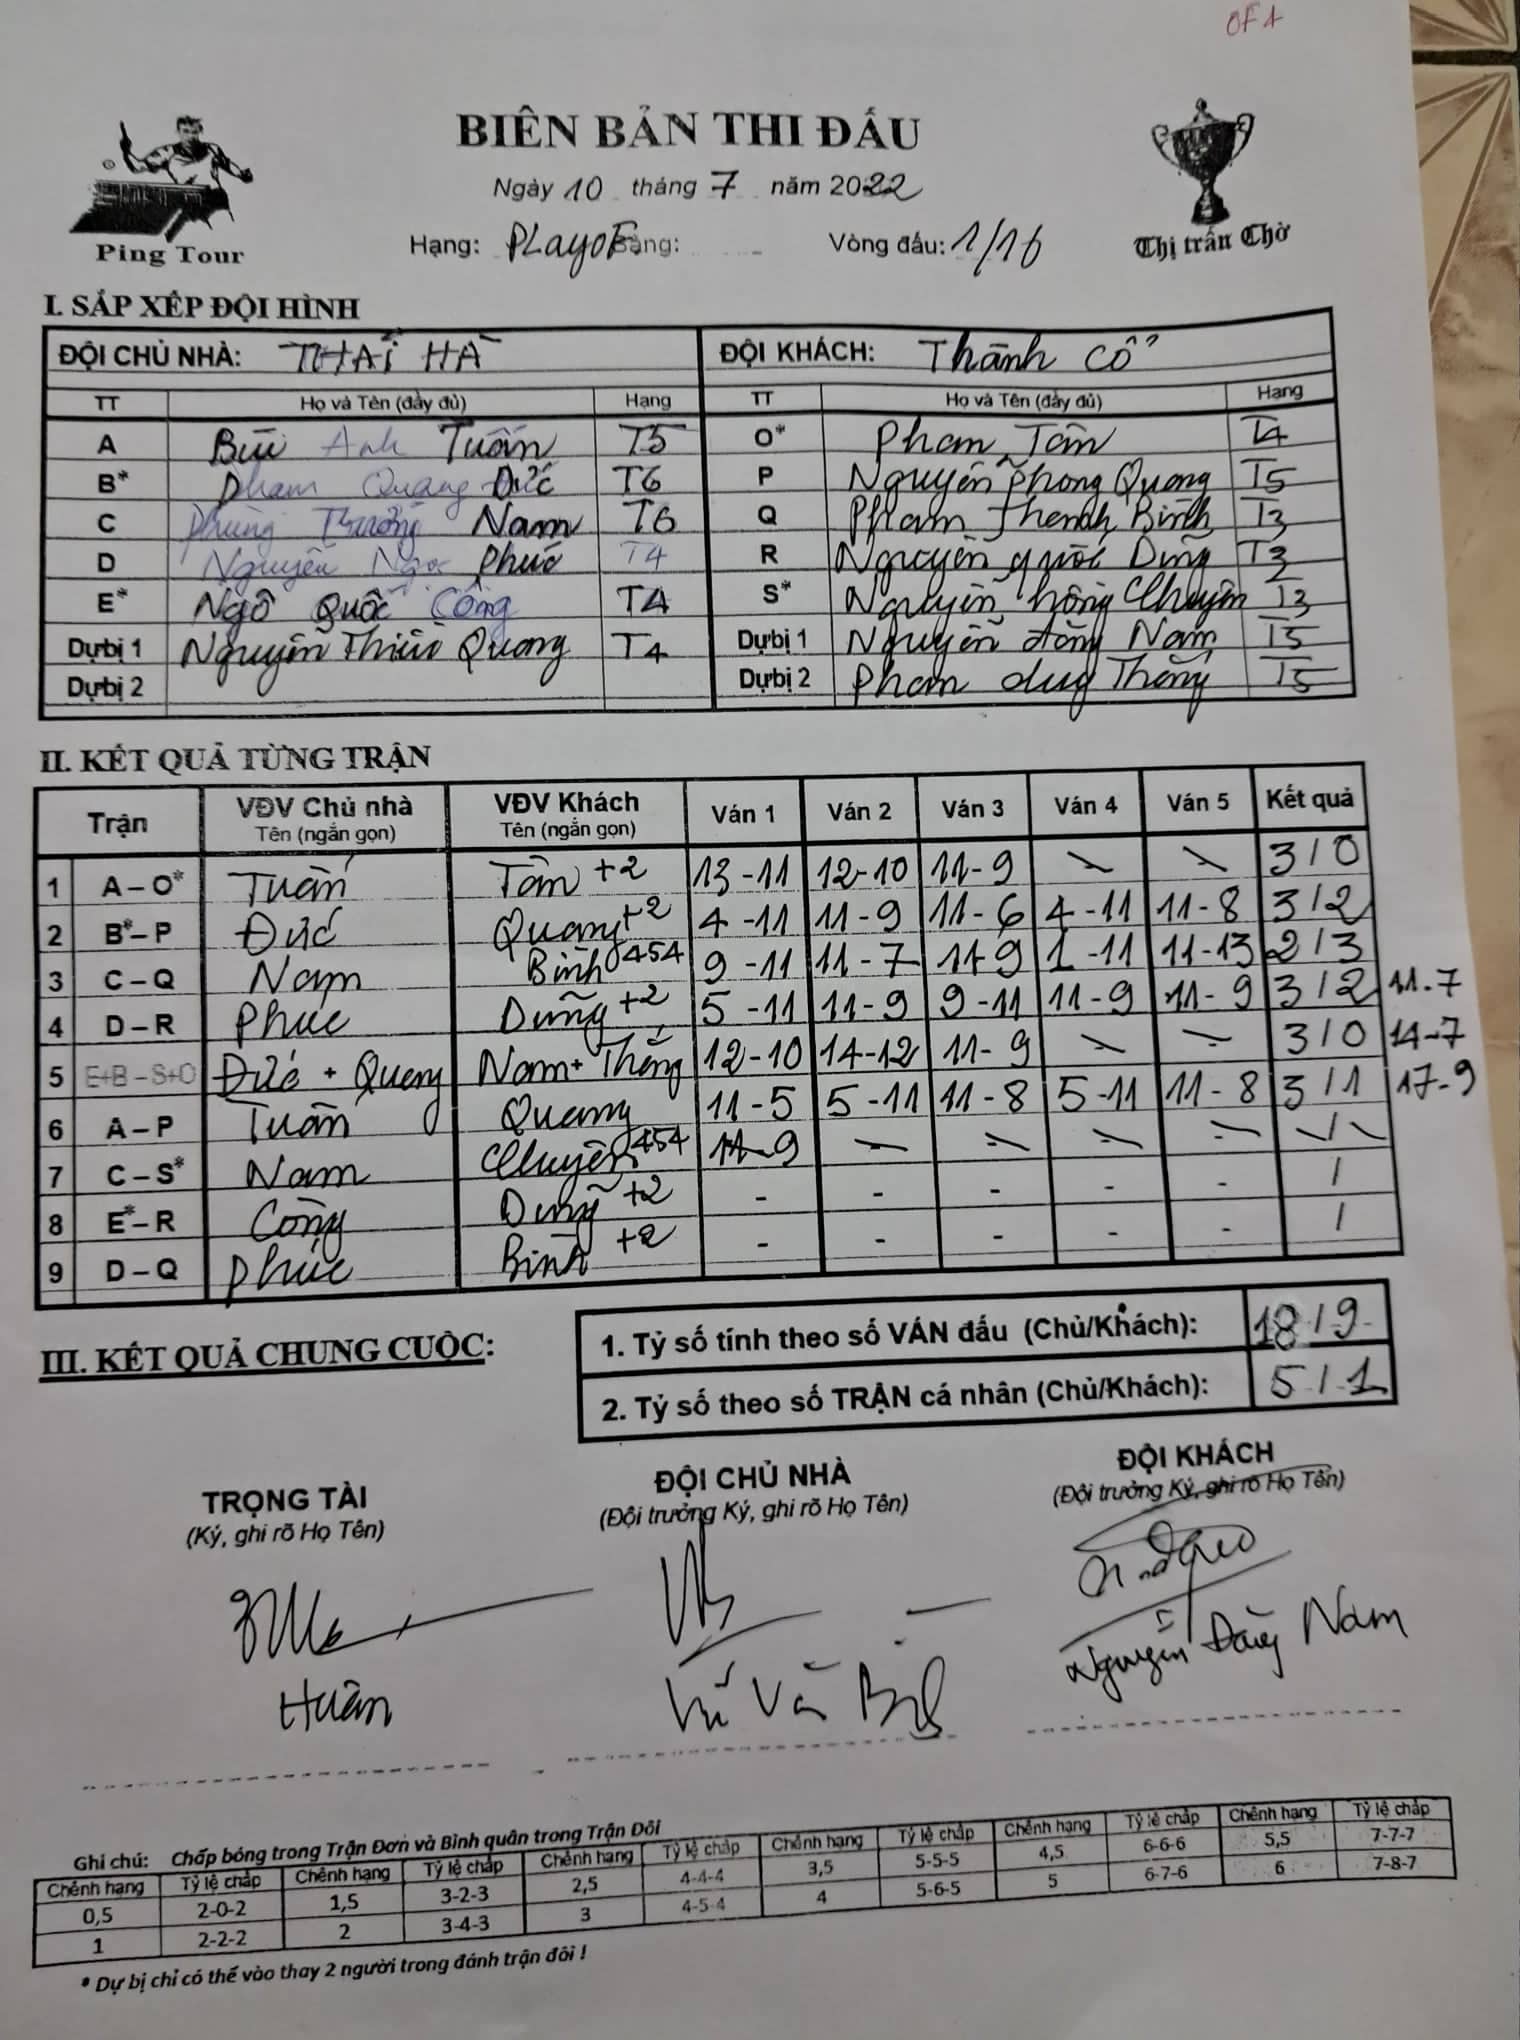 OF 1
BIÊN BẢN THI ĐẤU
Ngày 10 tháng 7 năm 2022
Ping Tour
Hạng: PLayoF Bảng: Vòng đấu: 1/16
Thị trấn Chờ
I. SẮP XẾP ĐỘI HÌNH
ĐỘI CHỦ NHÀ: THÁI HÀ ĐỘI KHÁCH: Thành Cổ
TT Họ và Tên (đầy đủ) Hạng TT Họ và Tên (đầy đủ) Hạng
A Bùi Anh Tuấn T5 O* Phạm Tân T4
B* Phạm Quang Đức T6 P Nguyễn Phong Quang T5
C Phùng Trường Nam T6 Q Phạm Thanh Bình T3
D Nguyễn Ngọc Phúc T4 R Nguyễn quốc Dũng T3
E* Ngô Quốc Công T4 S* Nguyễn hồng Chuyên T3
Dự bị 1 Nguyễn Thiều Quang T4 Dự bị 1 Nguyễn đăng Nam T5
Dự bị 2 Dự bị 2 Phạm duy Thắng T5
II. KẾT QUẢ TỪNG TRẬN
Trận VĐV Chủ nhà VĐV Khách Ván 1 Ván 2 Ván 3 Ván 4 Ván 5 Kết quả
Tên (ngắn gọn) Tên (ngắn gọn)
1 A – O* Tuấn Tân +2 13-11 12-10 11-9 - - 3/0
2 B* – P Đức Quang +2 4-11 11-9 11-6 4-11 11-8 3/2
3 C – Q Nam Bình 454 9-11 11-7 11-9 1-11 11-13 2/3
4 D – R Phúc Dũng +2 5-11 11-9 9-11 11-9 11-9 3/2 11-7
5 E+B – S+O Đức + Quang Nam + Thắng 12-10 14-12 11-9 - - 3/0 14-7
6 A – P Tuấn Quang 11-5 5-11 11-8 5-11 11-8 3/1 17-9
7 C – S* Nam Chuyên 454 11-9 - - - - /
8 E* – R Công Dũng +2 - - - - - /
9 D – Q Phúc Bình +2 - - - - - /
III. KẾT QUẢ CHUNG CUỘC:
1. Tỷ số tính theo số VÁN đấu (Chủ/Khách): 18/9
2. Tỷ số theo số TRẬN cá nhân (Chủ/Khách): 5/1
TRỌNG TÀI ĐỘI CHỦ NHÀ ĐỘI KHÁCH
(Ký, ghi rõ Họ Tên) (Đội trưởng Ký, ghi rõ Họ Tên) (Đội trưởng Ký, ghi rõ Họ Tên)
Huân Nguyễn Đăng Nam
Ghi chú: Chấp bóng trong Trận Đơn và Bình quân trong Trận Đôi
Chênh hạng Tỷ lệ chấp Chênh hạng Tỷ lệ chấp Chênh hạng Tỷ lệ chấp Chênh hạng Tỷ lệ chấp Chênh hạng Tỷ lệ chấp Chênh hạng Tỷ lệ chấp
0,5 2-0-2 1,5 3-2-3 2,5 4-4-4 3,5 5-5-5 4,5 6-6-6 5,5 7-7-7
1 2-2-2 2 3-4-3 3 4-5-4 4 5-6-5 5 6-7-6 6 7-8-7
* Dự bị chỉ có thể vào thay 2 người trong đánh trận đôi !